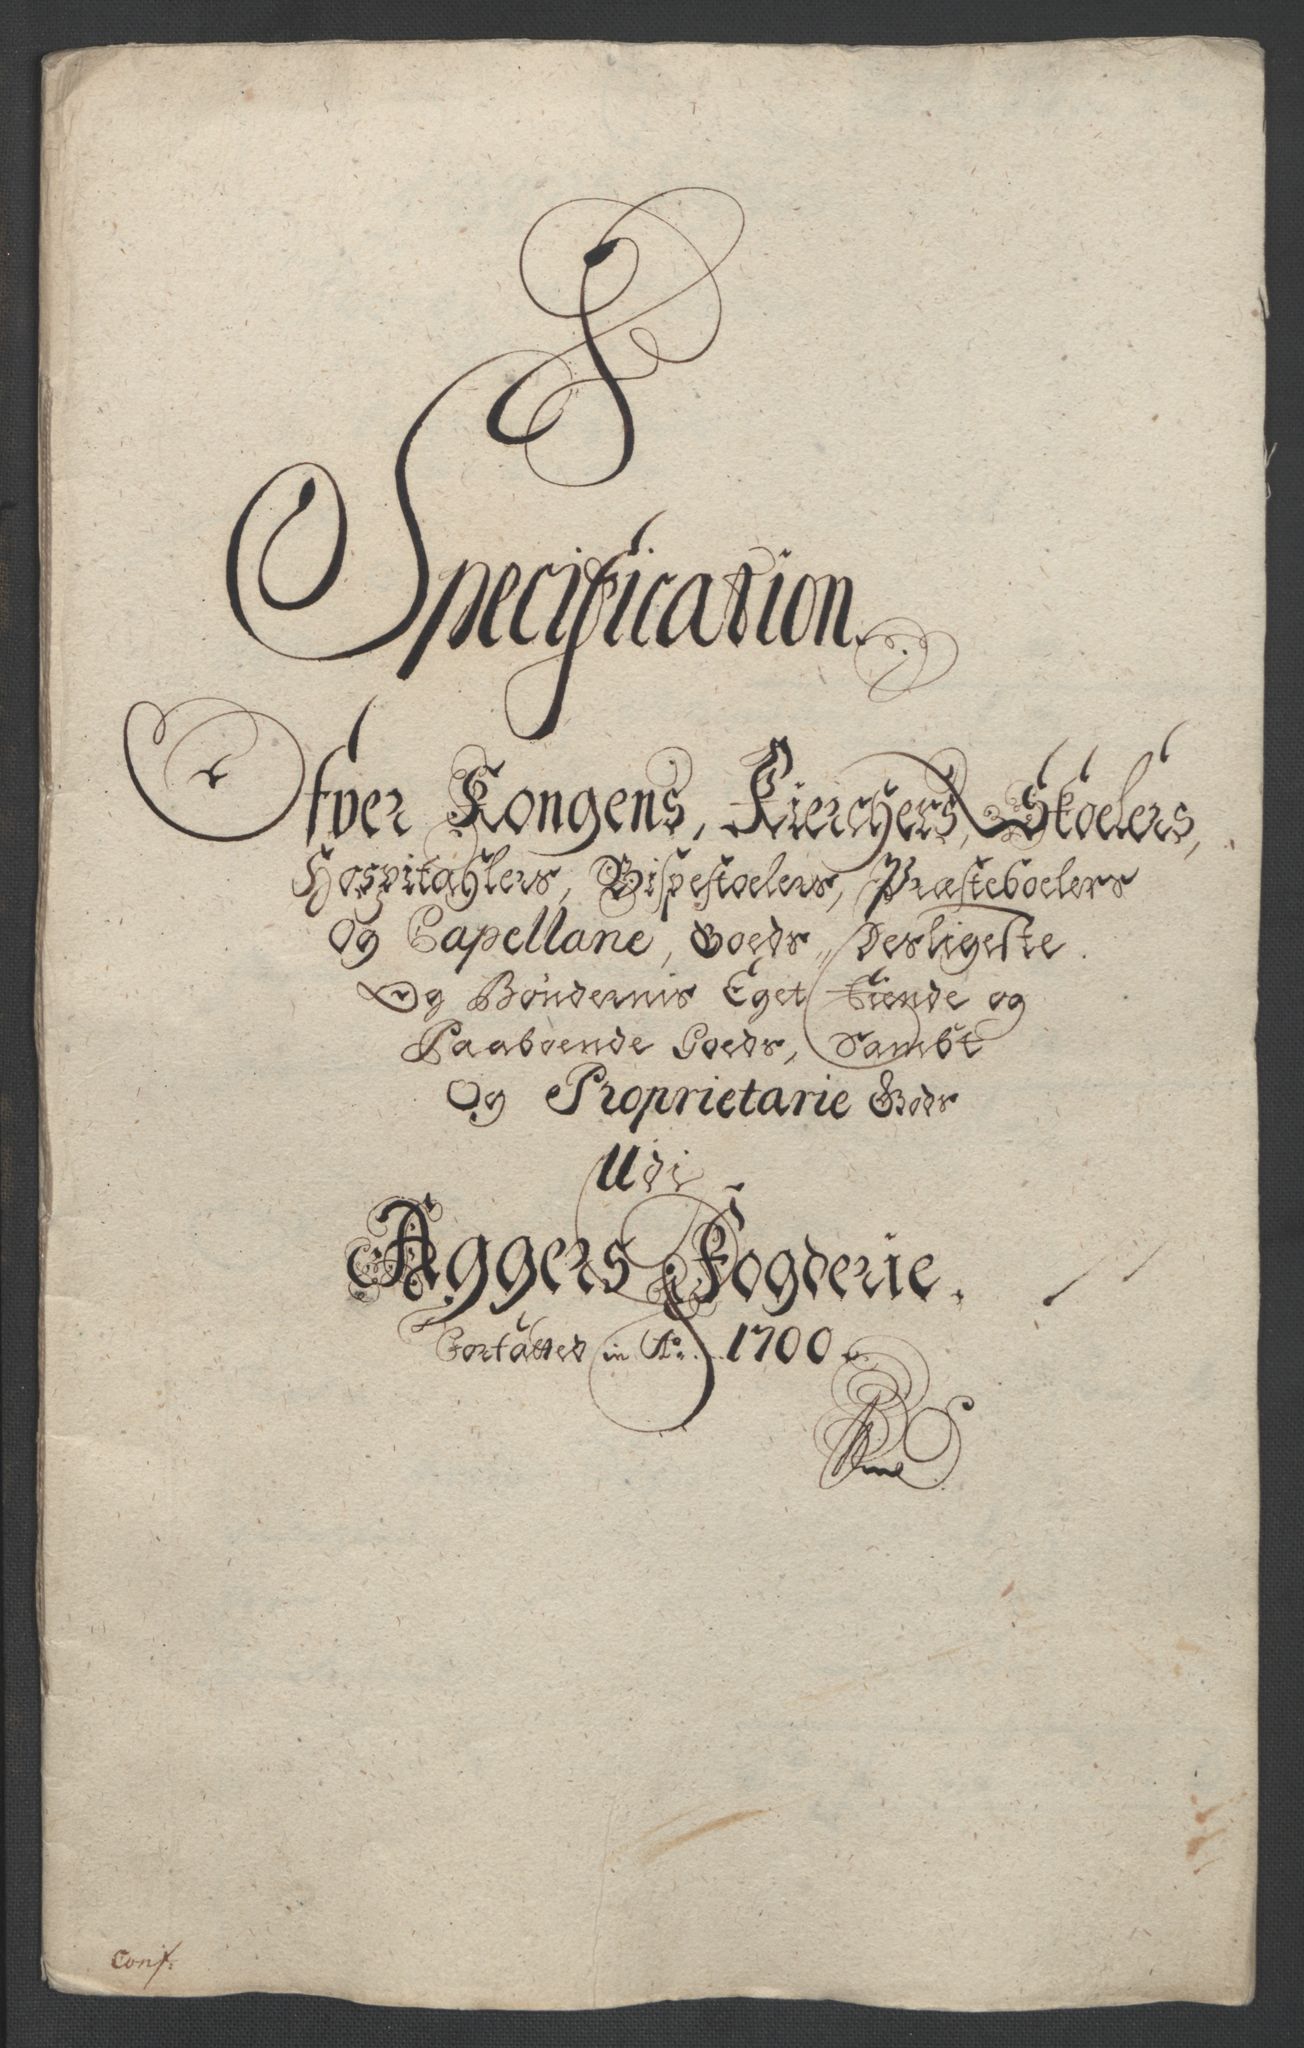 Specification
Ofver Kongens, Kierchers, Skoelers,
Hospitahlers, Bispestoelers, Præsteboelers
Og Capellane, Goeds, Desligeste
Og Bøndernis Eget Eiende og
Paaboende Goeds, Sambt
Og Proprietarie Gods
Udi
Aggers Fogderie.
Forfatted in Ao. 1700.
Conf: